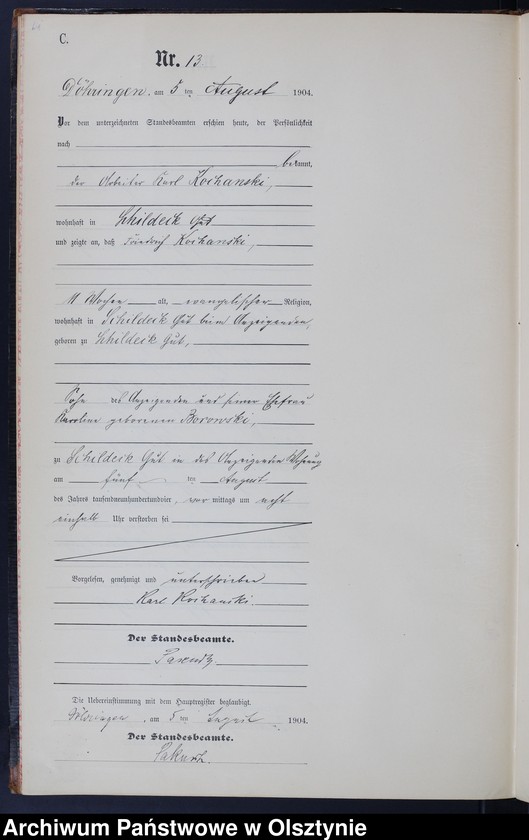 C.
Nr. 13
Döhringen. am 5 ten August 1904.
Vor dem unterzeichneten Standesbeamten erschien heute, der Persönlichkeit
nach
bekannt,
der Arbeiter Karl Kochanski,
wohnhaft in Schildeck Gut
und zeigte an, daß Friedrich Kochanski,
11 Wochen alt, evangelischer Religion,
wohnhaft in Schildeck Gut beim Anzeigenden,
geboren zu Schildeck Gut,
Sohn des Anzeigenden und seiner Ehefrau
Karoline geborenen Borowski,
zu Schildeck Gut in des Anzeigenden Wohnung
am fünf ten August
des Jahres tausendneunhundertundvier, vor mittags um acht
einhalb Uhr verstorben sei
Vorgelesen, genehmigt und unterschrieben
Karl Kochanski.
Der Standesbeamte.
Die Uebereinstimmung mit dem Hauptregister beglaubigt.
Döhringen, am 5 ten August 1904.
Der Standesbeamte.
Archiwum Państwowe w Olsztynie